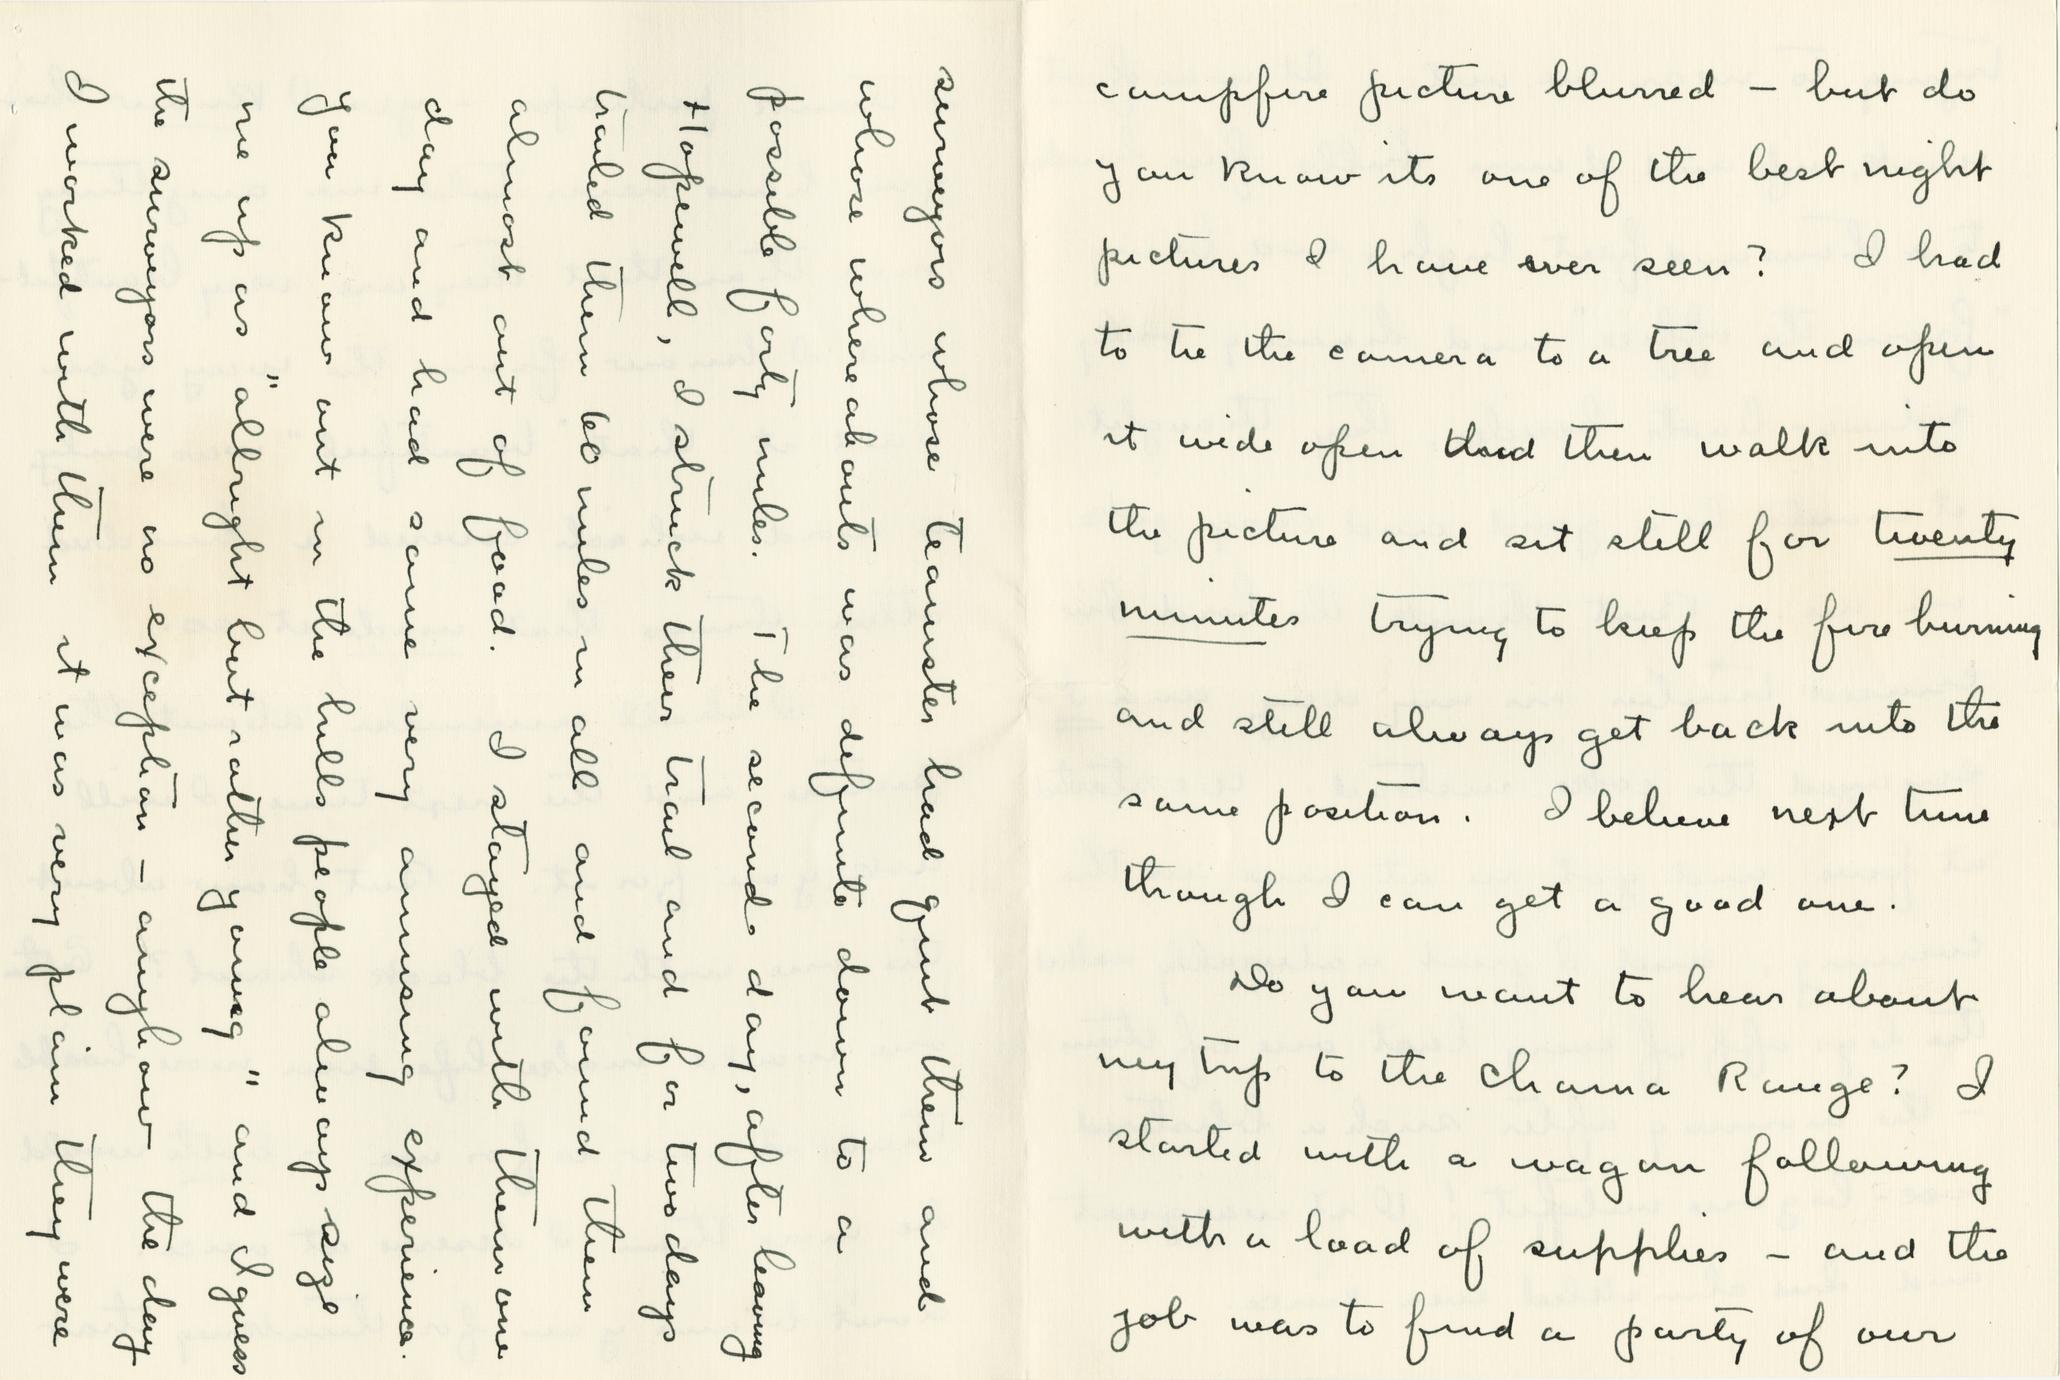 campfire picture blurred – but do
you know its one of the best night
pictures I have ever seen? I had
to tie the camera to a tree and open
it wide open and then walk into
the picture and sit still for twenty
minutes trying to keep the fire burning
and still always get back into the
same position. I believe next time
though I can get a good one.
Do you want to hear about
my trip to the Chama Range? I
started with a wagon following
with a load of supplies – and the
job was to find a party of our
surveyors whose teamster had quit them and
whose whereabouts was definite down to a
possible forty miles. The second day, after leaving
Hopewell, I struck their trail and for two days
trailed them 60 miles in all and found them
almost out of food. I stayed with them one
day and had some very amusing experience.
You know out in the hills people always size
me up as "allright but rather young" and I guess
the surveyors were no exception – anyhow the day
I worked with them it was very plain they were